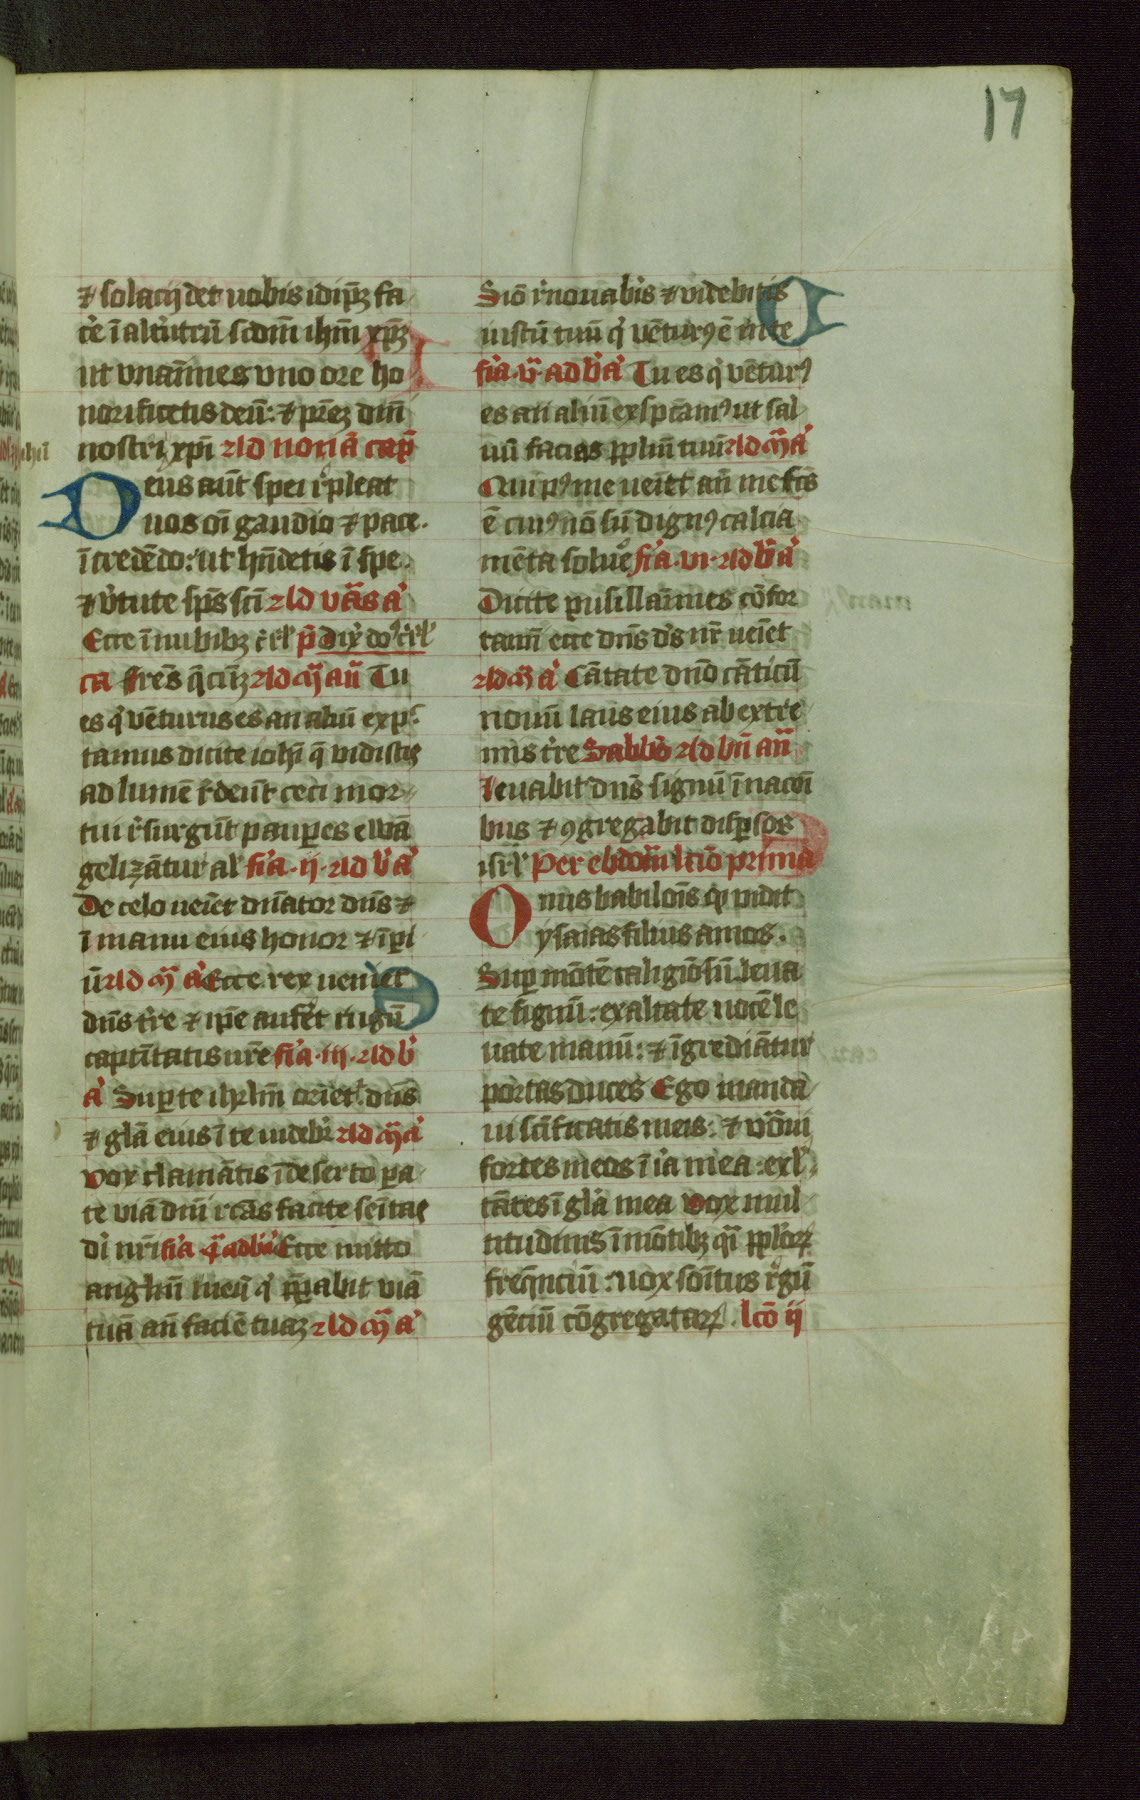 17
⁊ solacij det uobis idip̄ꝫ sa
ꝑe ī alt͛utrū scdm̄ ihm̄ xp̄ꝫ
ut vnāīmes vno ore ho
norificetis deū: ⁊ pr̄eꝫ dn̄i
nostri xp̄i ad nonā cap̄
Deus aūt spei r̄pleat
uos oī gaudio ⁊ pace.
ī credēdo: ut hn̄detis ī spe
⁊ v͛tute sp̄s sc̄i ad vās a͛
Ecce ī nubibꝫ
ca Fr̄es q̄cūqꝫ ad mā añ Tu
es q͛ vēturus es an aliū exp̄c
tamus dicite ioh̄i q̄ vidistis
ad lumē r̄deūt ceci mor
tui r͛surgūt paupes ewā
gelizātur al͛ fīa ·ij· ad b̄ a͛
De celo ueīet dn̄ator dn̄s ⁊
ī manu eius honor ⁊ īꝑi
ū ad mā a͛ Ecce rex ueniet
dn̄s t͛re ⁊ ip̄e aufēt iugū
captīutatis nr̄e fīa ·iij· ad b̄
a͛ Super te ihrlm̄ oriet͛ dn̄s
⁊ glā eius ī te uidebit͛ ad mā a͛
Vox clamātis ī deserto pa
te viā dn̄i rc̄as facite semitas
di nr̄i fīa q͛ ad b̄ Ecce mitto
angelū meū q͛ p̄parabit viā
tuā an̄ faciē tuaꝫ ad mā a͛
Siō r͛nouab͛is ⁊ videbitis
iustū tuū q͛ vēturꝰ ē in te
fīa ·v· ad b̄ a͛ Tu es q͛ vēturꝰ
es an aliū exspc̄amꝰ ut sal
uū facias pplm̄ tuū ad mā a͛
Qui pꝰ me ueīet an̄ me fc̄s
ē cuiꝰ nō sū dignꝰ calcia
mēta soluē fīa ·vi· ad b̄ a͛
Dicite pusillāīmes cōfor
tamī ecce dn̄s dꝰs nr̄ ueīet
ad mā a͛ Cātate dn̄o cāticū
nouū laus eius ab extre
mis t͛re Sabbō ad bn̄ añ
Leuabit dn̄s signū ī nacōi
bus ⁊ ꝯgregabit dispsos
isrl̄ Per ebdom̄ lcīo prima
Onus babilōis q͛ vidit
ysaias filius amos.
Sup mōtē caligiōsū leua
te signū: exaltate uocē le
uate manū: ⁊ īgrediātur
portas duces Ego manda
ui sc̄ificatis meis: ⁊ vōaui
fortes meos ī īa mea: exl̄
tātes ī glā mea vox mul
titudinis ī mōtibꝫ q͛i pplorꝝ
freq̄nciū: uox sonitus r͛gū
gēciū cōgregatarꝝ. lcō ij